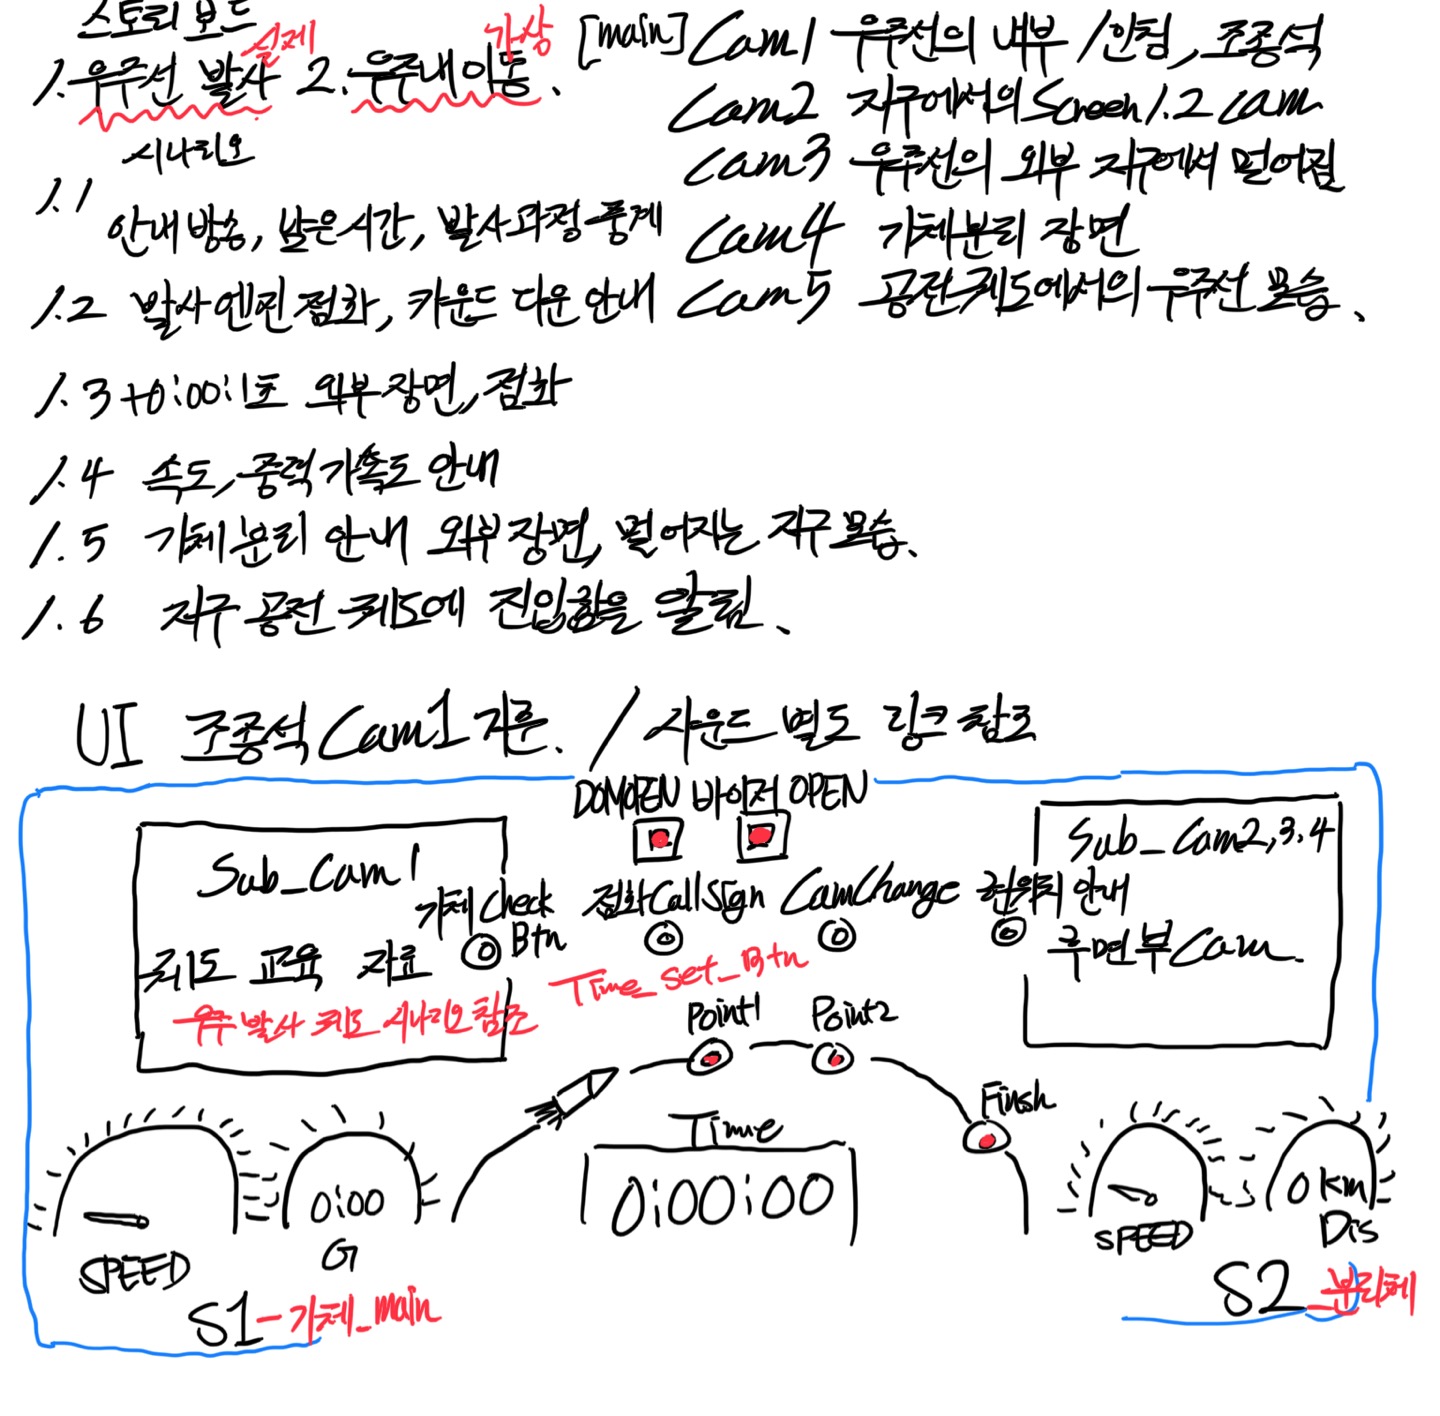 스토리보드
실제 가상
1. 우주선 발사 2. 우주내이동.
시나리오
1.1
안내방송, 남은시간, 발사과정중계
1.2 발사엔진점화, 카운드 다운 안내
1.3 +0:00:1초 외부장면, 점화
1.4 속도, 중력가속도 안내
1.5 기체분리 안내 외부장면, 멀어지는 지구모습.
1.6 지구 공전궤도에 진입함을 알림.
[main] Cam1 우주선의 내부 /인칭, 조종석
Cam2 지구에서의 Screen1.2 cam
Cam3 우주선의 외부 지구에서 멀어짐
Cam4 기체분리 장면
Cam5 공전궤도에서의 우주선 모습.
UI 조종석 Cam1 기준. / 사운드 별도 링크참조
DOMOPEN 바이저 OPEN
Sub_Cam1
궤도 교육 자료
우주발사 궤도 시나리오참조
기체 Check
Btn
점화CallSign CamChange 현위치 안내
Time_set_Btn
Sub_Cam2,3,4
후면부Cam
Point1 Point2
Finsh
Time
0:00:00
SPEED
0:00
G
S1-기체_main
SPEED
0km
Dis
S2_분리체